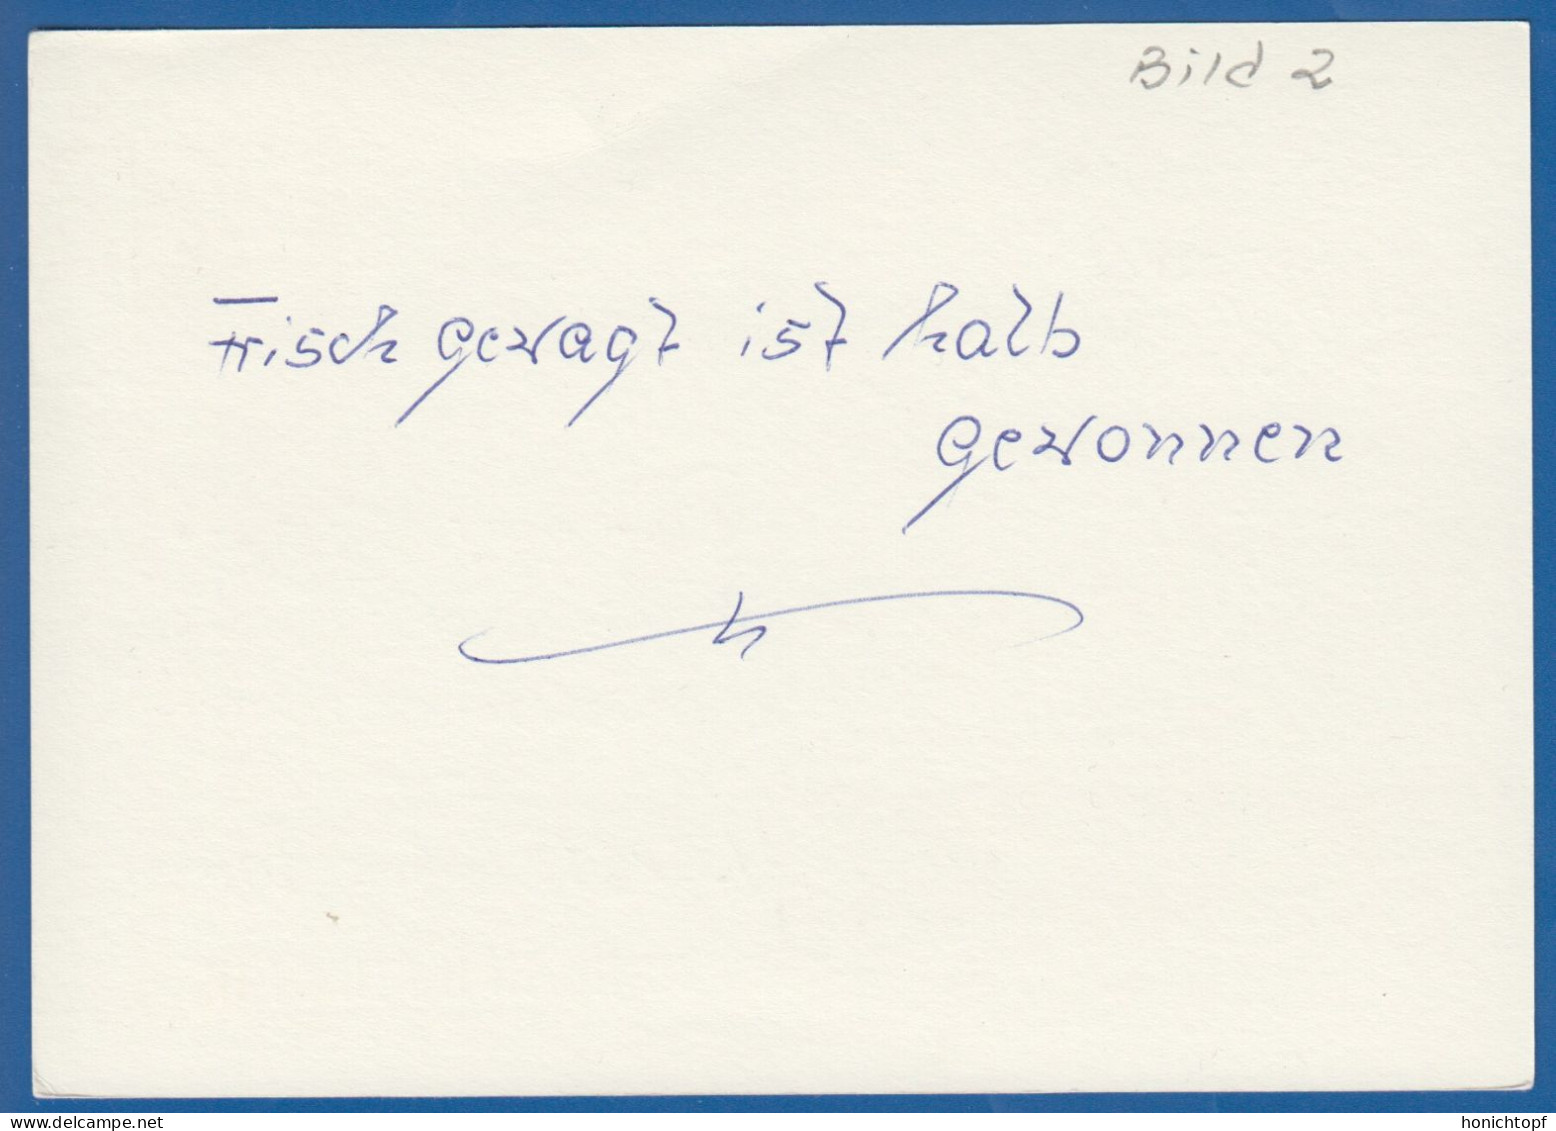 Bild 2
Frisch gewagt ist halb
gewonnen
www.delcampe.net
honichtopf